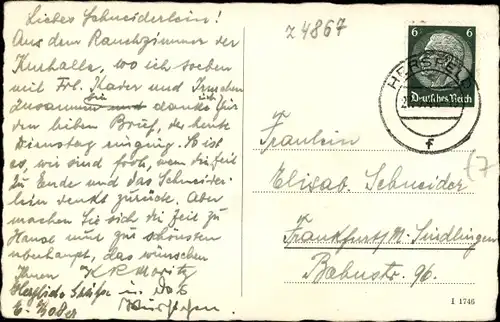 Liebes Schneiderlein!
Aus dem Rauchzimmer der
Kurhalle, wo ich soeben
mit Frl. Kader und
danke ich für
den lieben Brief, der heute
Dienstag einging. So ist
es, wir sind froh, wenn die Zeit
zu Ende und das Schneider-
lein denkt zurück. Aber
machen Sie sich die Zeit zu
Hause nur zu schönsten
überhaupt, das wünschen
Ihnen
Herzliche Grüße in
z 4867
6 6
Deutsches Reich
HERSFELD
f
Fräulein
Elisab. Schneider
(7
Frankfurt/M.-Sindlingen
Bahnstr. 96.
I 1746